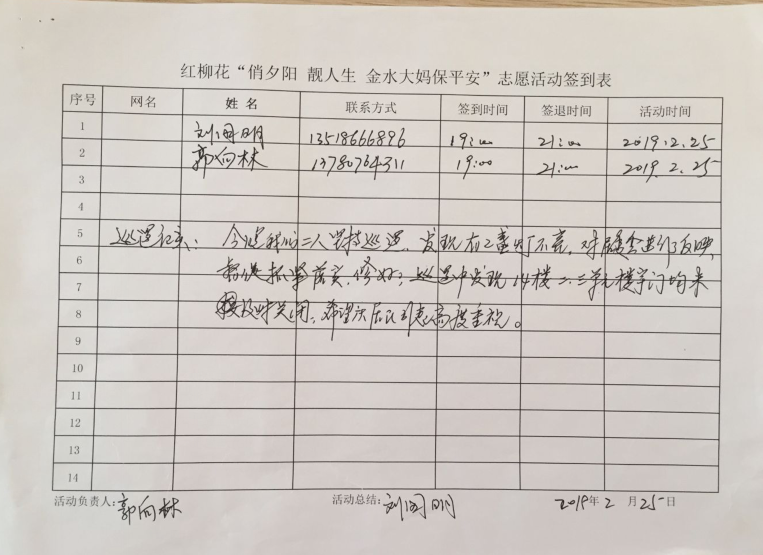 红柳花“俏夕阳 靓人生 金水大妈保平安”志愿活动签到表
序号 网名 姓名 联系方式 签到时间 签退时间 活动时间
1 刘国明 13518666896 19:00 21:00 2019.2.25
2 郭向林 13780764311 19:00 21:00 2019.2.25
3
4
5 巡逻记录: 今晚我们二人坚持巡逻,发现有2盏灯不亮,对居委会进行了反映,
6 抓紧落实,修好;巡逻中发现14楼二.三单元楼宇门均未
7 及时关闭,希望庆居民引起高度重视。
8
9
10
11
12
13
14
活动负责人:郭向林 活动总结:刘国明 2019年2月25日